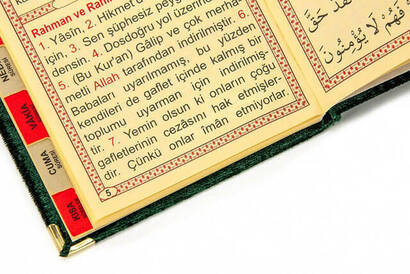 Rahman ve Rah
1. Yâsîn. 2. Hikmet d
için, 3. Sen şüphesiz peyg
densin. 4. Dosdoğru yol üzerin
5. (Bu Kur'an) Gâlip ve çok merha
metli Allah tarafından indirilmiştir. 6.
Babaları uyarılmamış, bu yüzden
kendileri de gaflet içinde kalmış bir
toplumu uyarman için indirilmiş-
tir. 7. Yemin olsun ki onların çoğu
gafletlerinin cezasını hak etmişler-
dir. Çünkü onlar îmân etmiyorlar.
5
فَهُمْ لَا يُؤْمِنُونَ
VÂKIA
CUMA
KISA